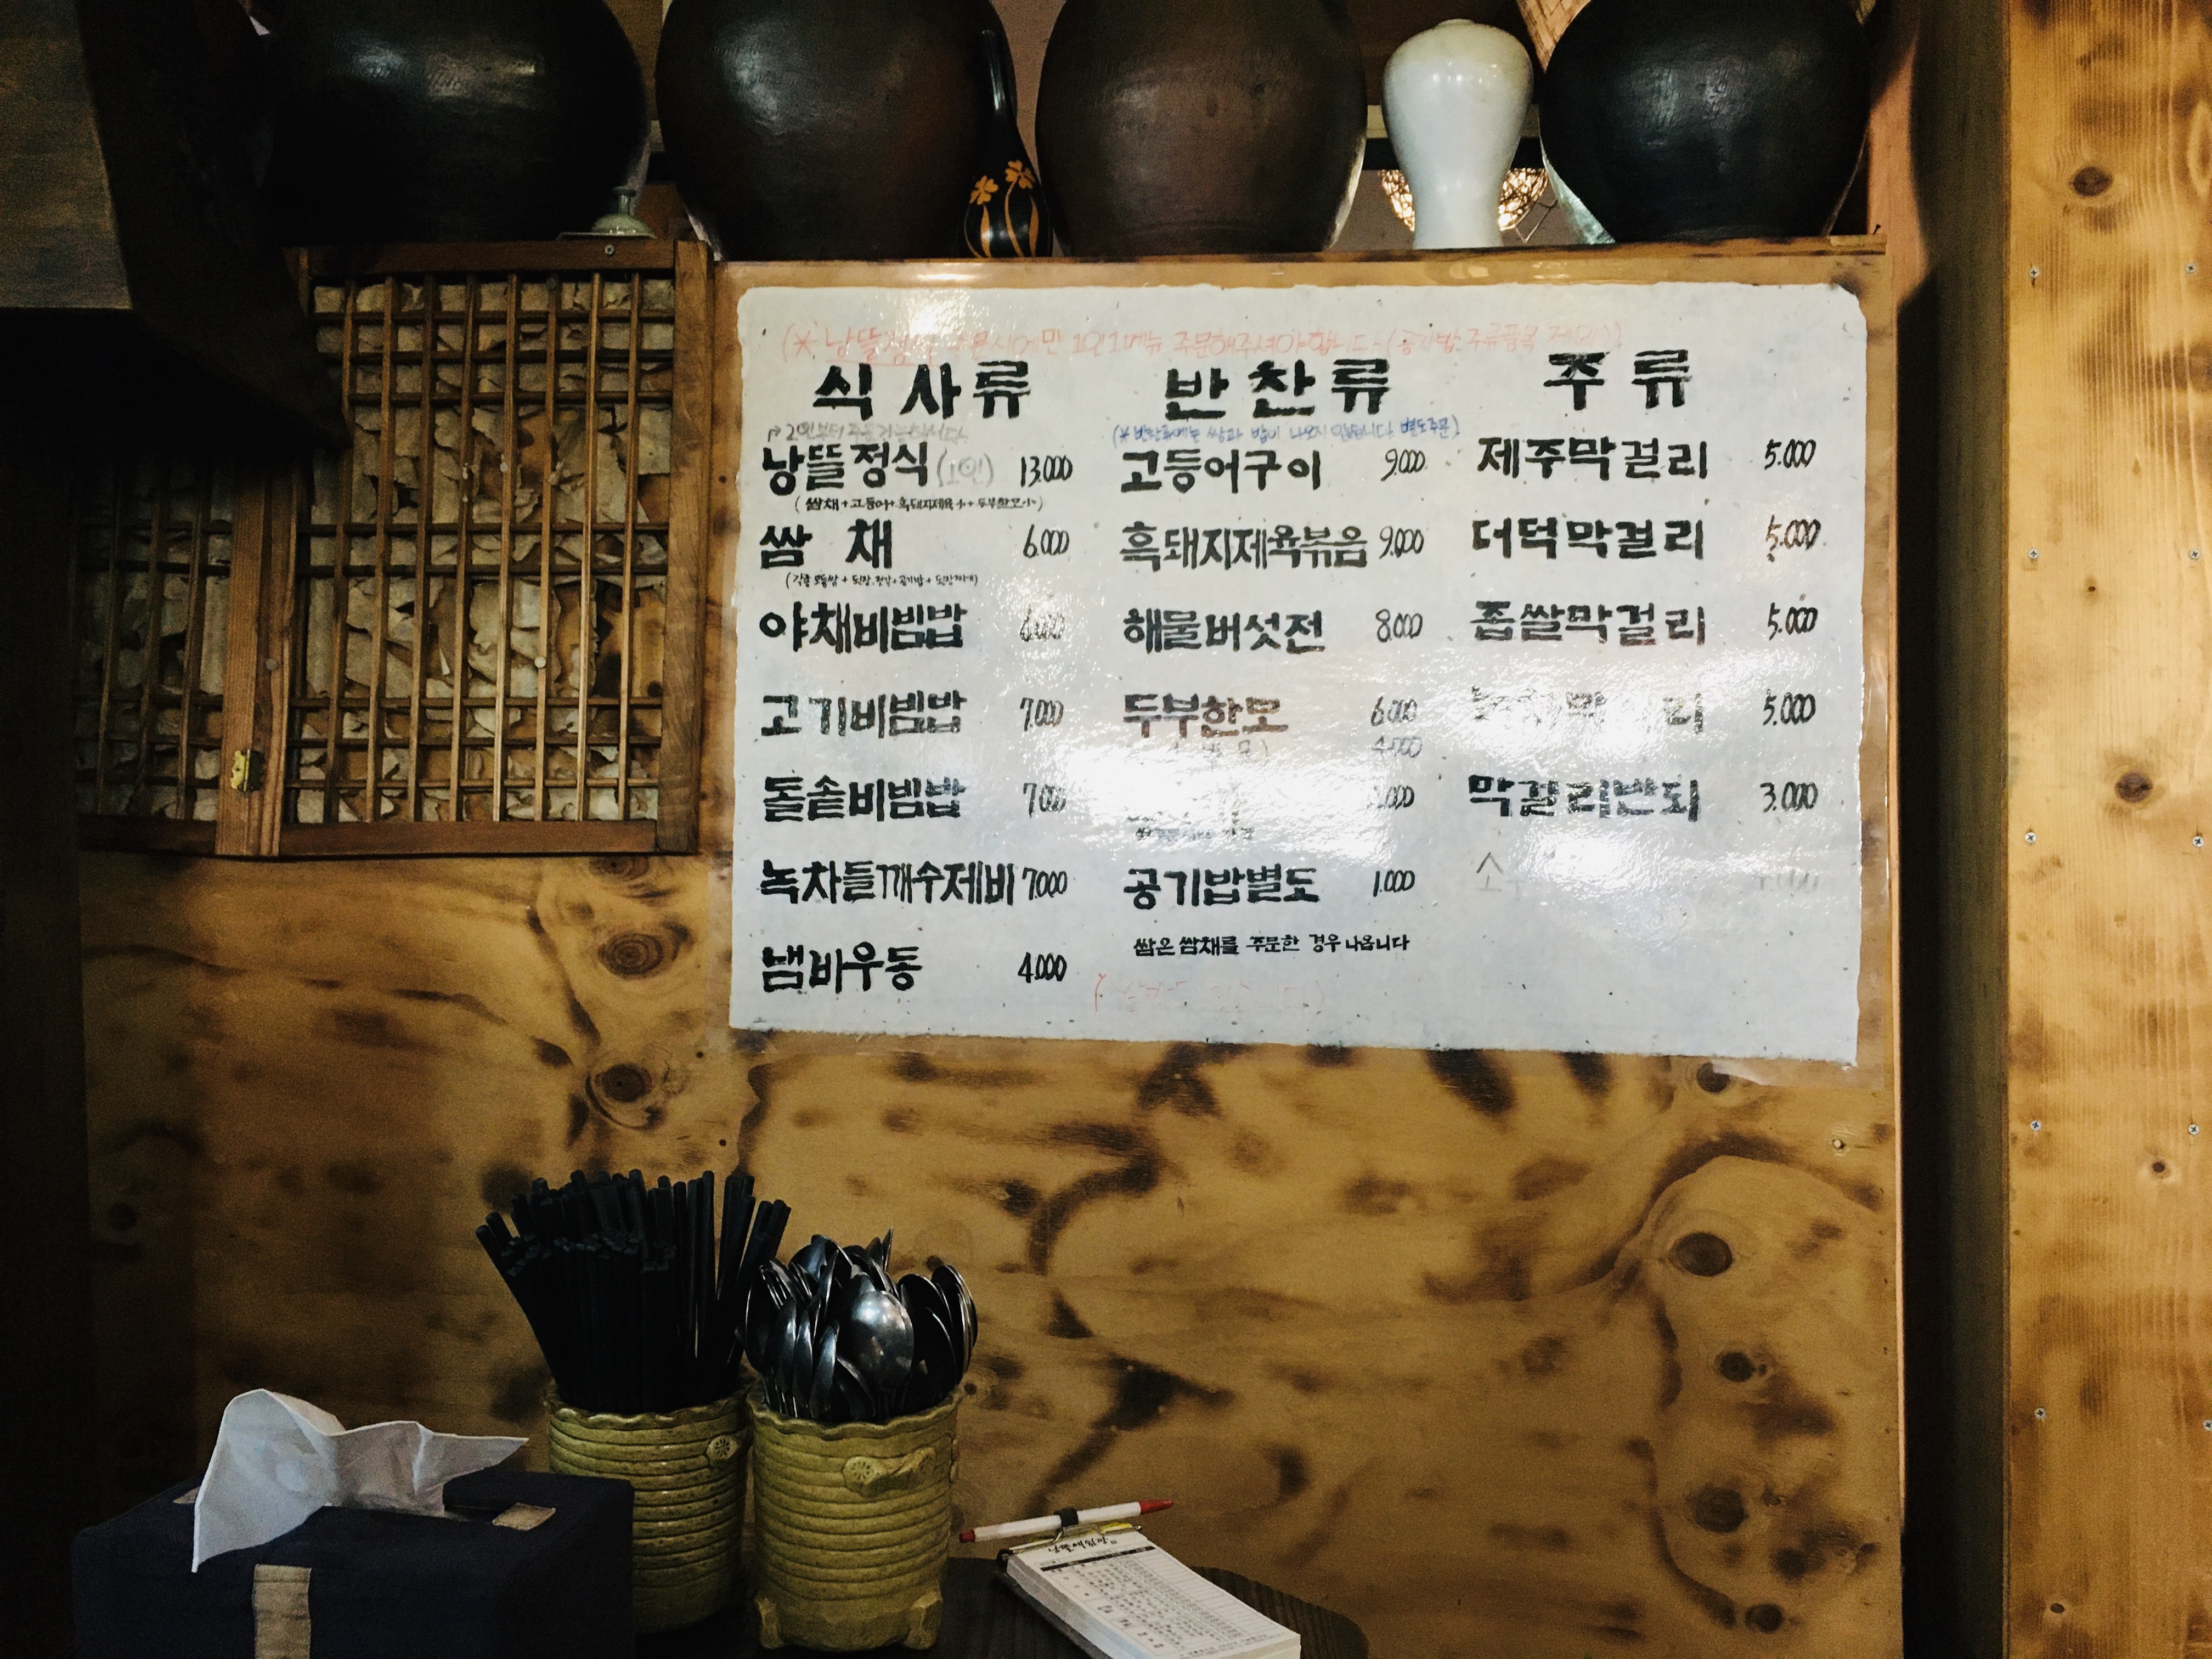 1인1메뉴 주문해주셔야합니다
식사류
낭뜰정식(1인) 13.000
(쌈채+고등어+흑돼지제육 小+두부한모小)
쌈 채 6.000
야채비빔밥 6.000
고기비빔밥 7.000
돌솥비빔밥 7.000
녹차들깨수제비 7.000
냄비우동 4.000
반찬류
(* 반찬류에는 쌈과 밥이 나오지 않습니다. 별도주문)
고등어구이 9.000
흑돼지제육볶음 9.000
해물버섯전 8.000
두부한모 6.000
4.000
공기밥별도 1.000
쌈은 쌈채를 주문한 경우 나옵니다
주류
제주막걸리 5.000
더덕막걸리 5.000
좁쌀막걸리 5.000
5.000
막걸리반되 3.000